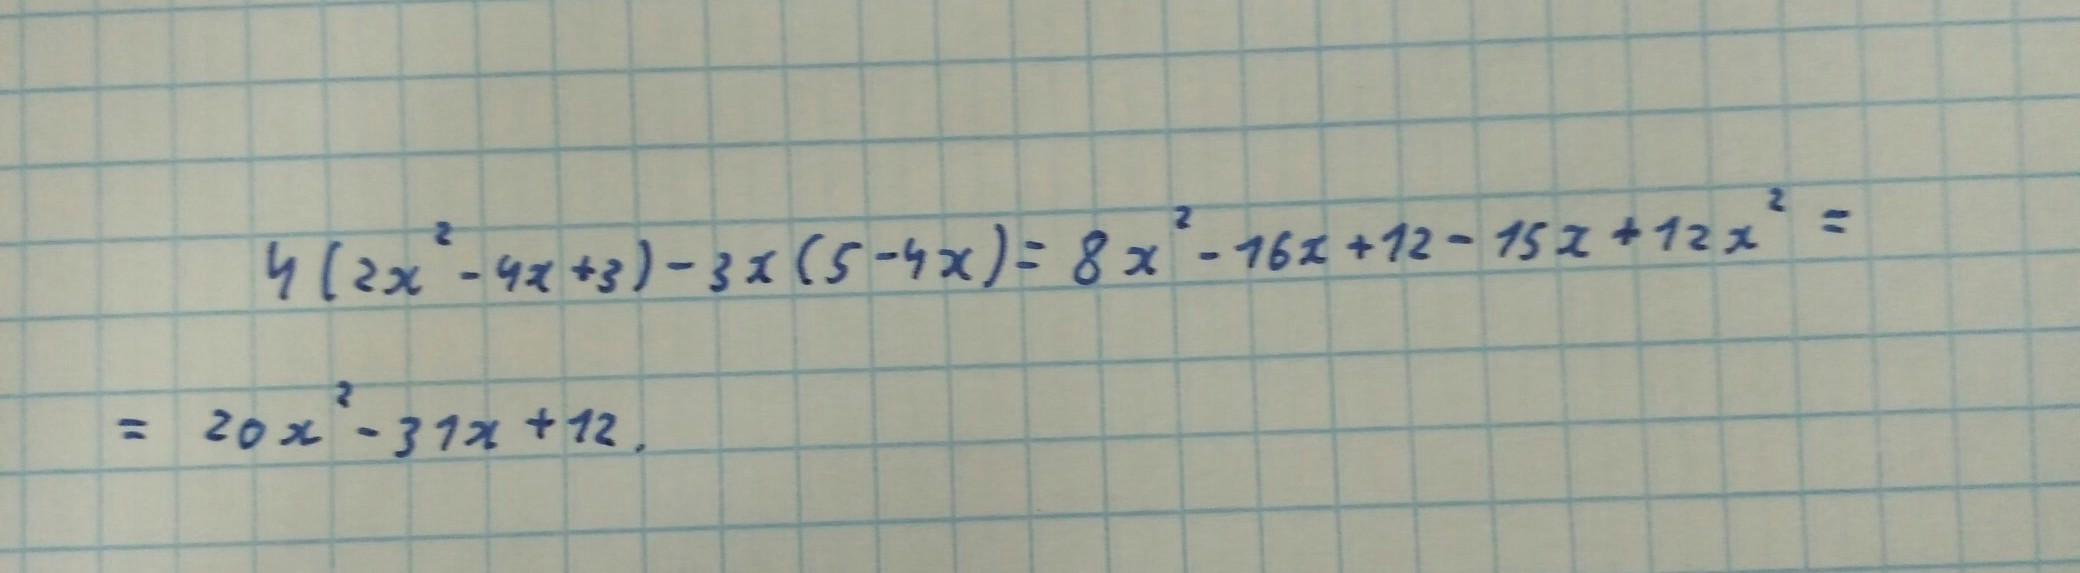 4(2x² - 4x + 3) - 3x(5 - 4x) = 8x² - 16x + 12 - 15x + 12x² =
= 20x² - 31x + 12.